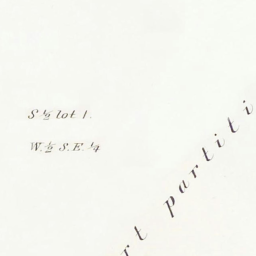 S ½ lot 1.
W. ½ S.E. ¼
rt partiti